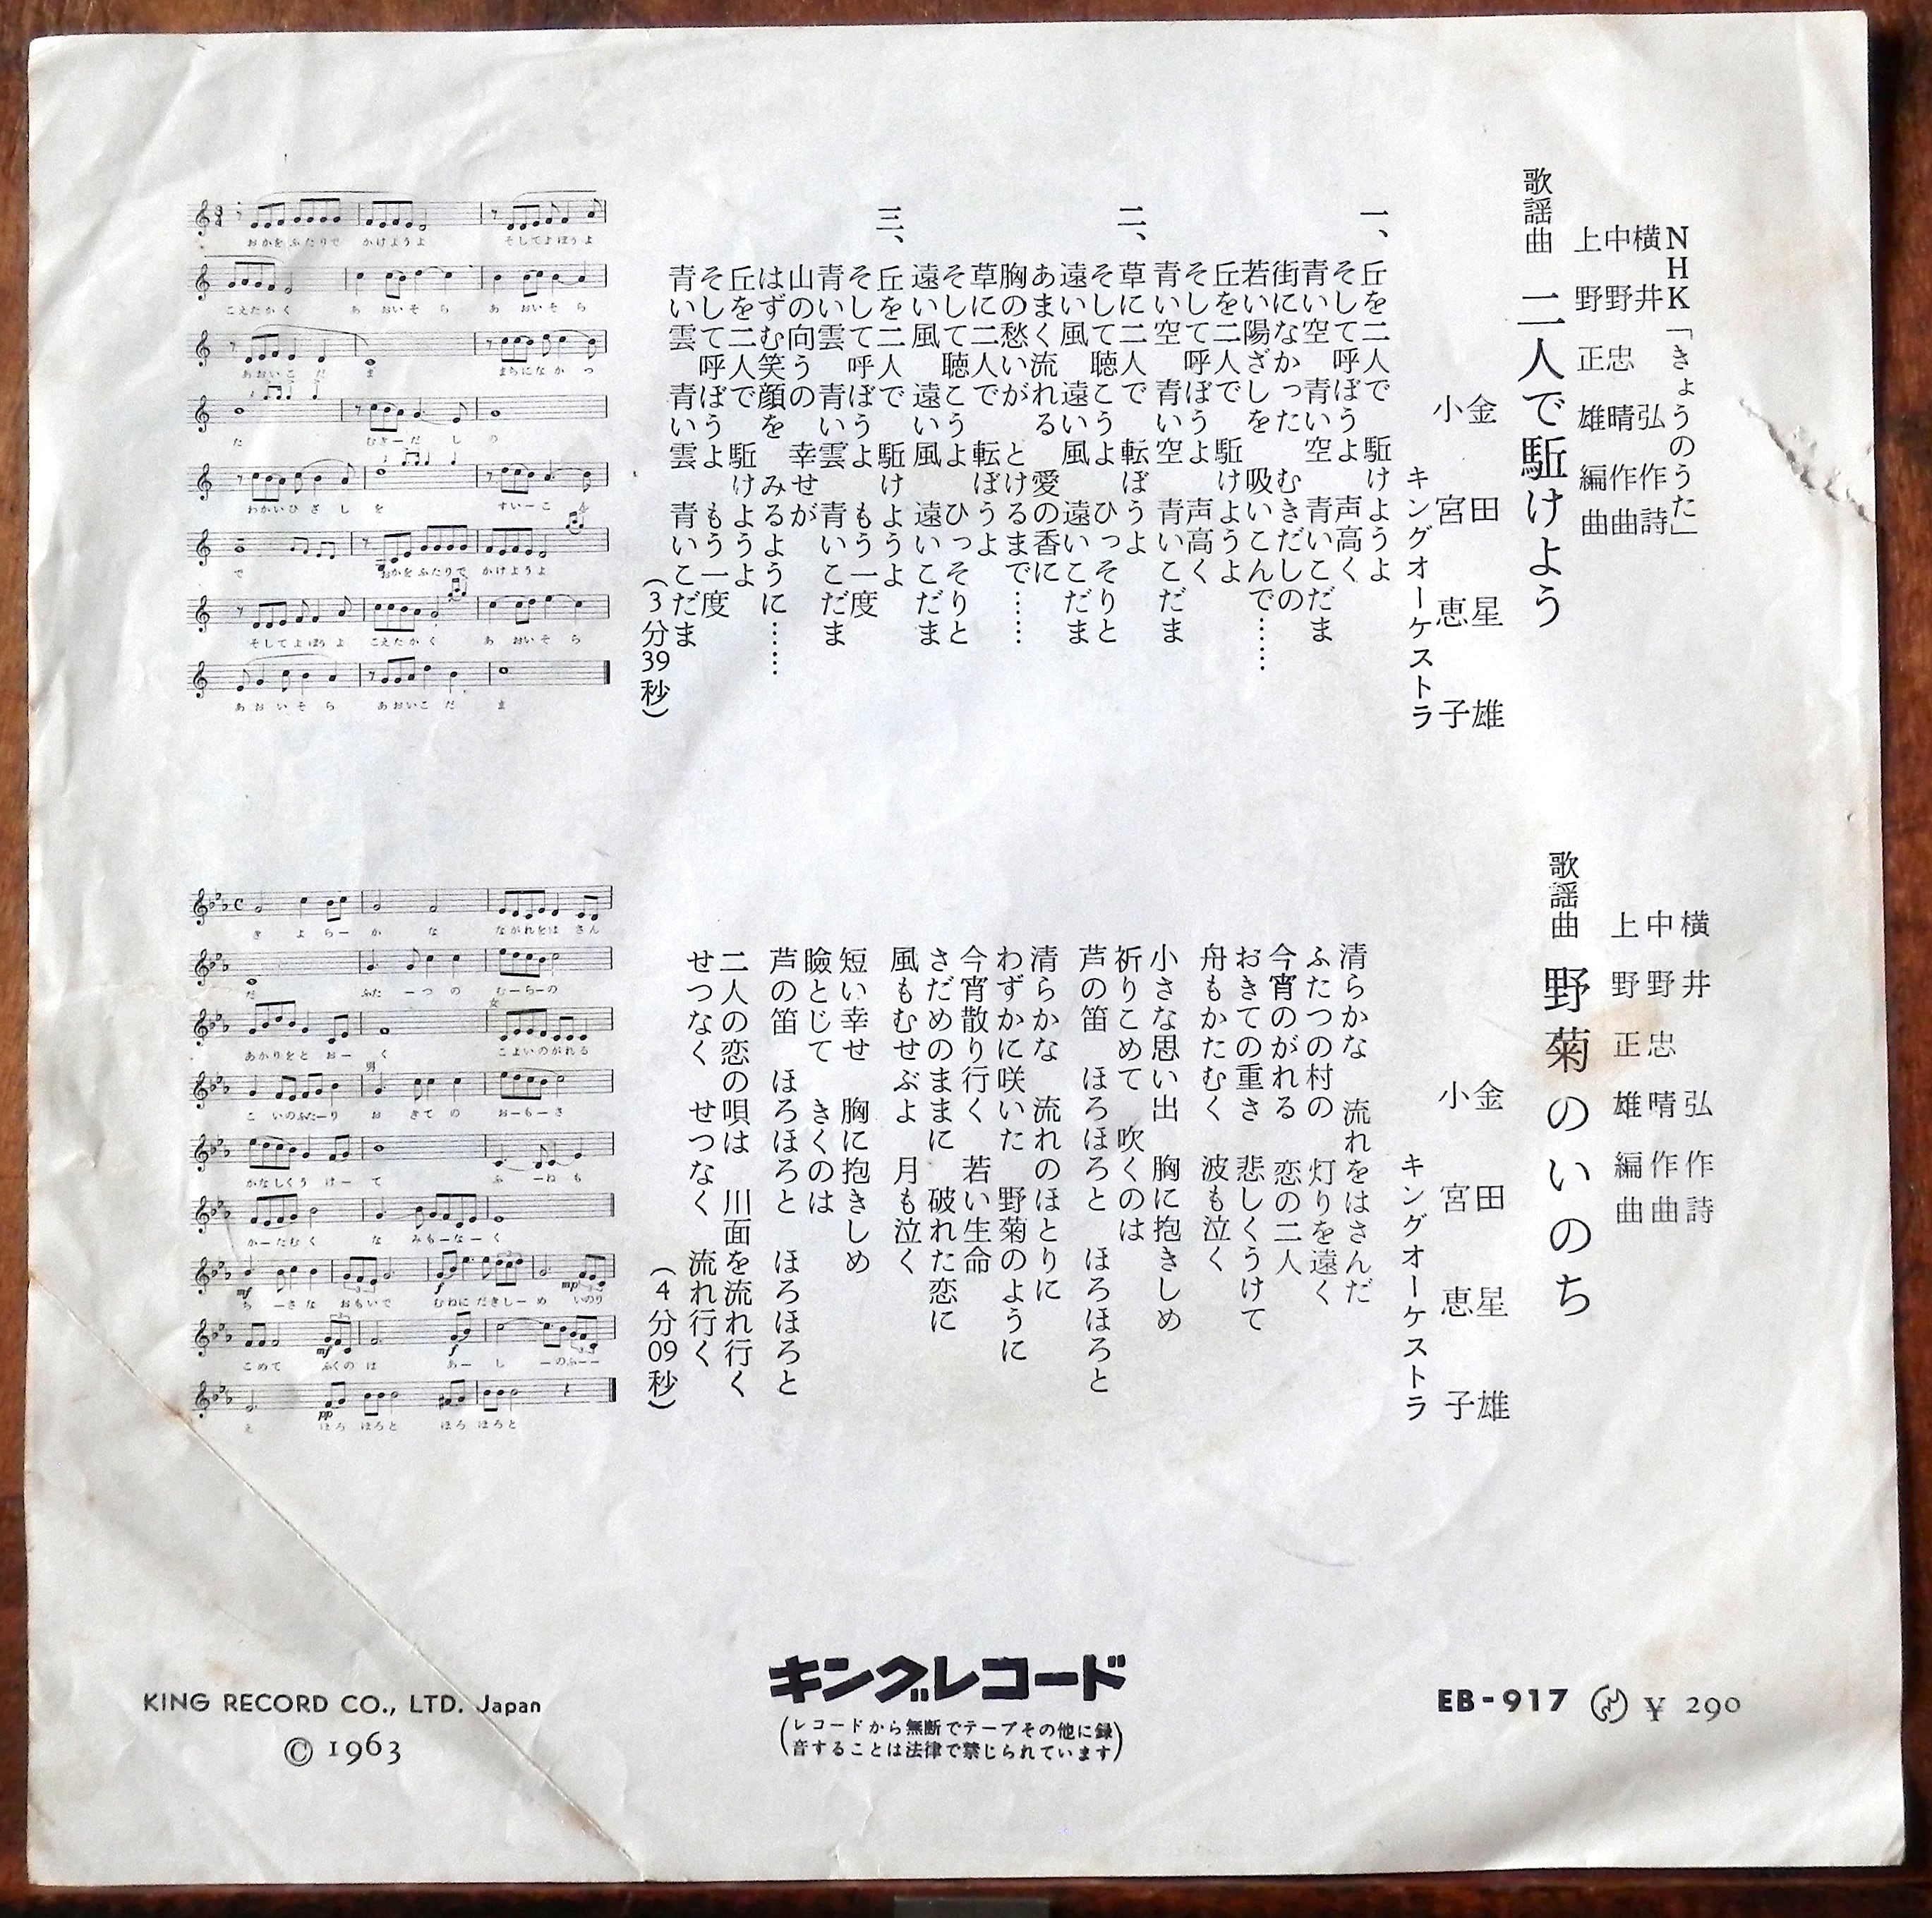 NHK「きょうのうた」
横井弘作詩
中野忠晴作曲
上野正雄編曲
歌謡曲 二人で駈けよう
金田星雄
小宮恵子
キングオーケストラ
一、
丘を二人で 駈けようよ
そして呼ぼうよ 声高く
青い空 青い空 青いこだま
街になかった むきだしの
若い陽ざしを 吸いこんで……
丘を二人で 駈けようよ
そして呼ぼうよ 声高く
青い空 青い空 青いこだま
二、
草に二人で 転ぼうよ
そして聴こうよ ひっそりと
遠い風 遠い風 遠いこだま
あまく流れる 愛の香に
胸の愁いが とけるまで……
草に二人で 転ぼうよ
そして聴こうよ ひっそりと
遠い風 遠い風 遠いこだま
三、
丘を二人で 駈けようよ
そして呼ぼうよ もう一度
青い雲 青い雲 青いこだま
山の向うの 幸せが
はずむ笑顔を みるように……
丘を二人で 駈けようよ
そして呼ぼうよ もう一度
青い雲 青い雲 青いこだま
(3分39秒)
おかをふたりで かけようよ そしてよぼうよ
こえたかく あ おいそ ら あ おいそ ら
あおいこ だ ま まちになかっ
た むきーだ し の
わかいひ ざ し を すいーこ ん
で おかをふたりで かけようよ
そしてよぼうよ こえたかく あ おいそ ら
あ お い そ ら あおいこ だ ま
横井弘作詩
中野忠晴作曲
上野正雄編曲
歌謡曲 野菊のいのち
金田星雄
小宮恵子
キングオーケストラ
清らかな 流れをはさんだ
ふたつの村の 灯りを遠く
今宵のがれる 恋の二人
おきての重さ 悲しくうけて
舟もかたむく 波も泣く
小さな思い出 胸に抱きしめ
祈りこめて 吹くのは
芦の笛 ほろほろと ほろほろと
清らかな 流れのほとりに
わずかに咲いた 野菊のように
今宵散り行く 若い生命
さだめのままに 破れた恋に
風もむせぶよ 月も泣く
短い幸せ 胸に抱きしめ
瞼とじて きくのは
芦の笛 ほろほろと ほろほろと
二人の恋の唄は 川面を流れ行く
せつなく せつなく 流れ行く
(4分09秒)
き よ らー か な ながれをは さん
だ ふた ーつ の むーらーの
女
あかりをと おー く こよいのがれる
男
こ いのふたーり お きて の おーもーさ
かなしくう けー て ふ ーね も
かーたむ く な みもーなー く
mf f mp
ち ーさ な おもいで むねに だきしー め いのり
mf f
こめて ふくの は あー し ーのふーー
pp
え ほろ ほろと ほろ ほろと
KING RECORD CO., LTD. Japan
© 1963
キングレコード
(レコードから無断でテープその他に録
音することは法律で禁じられています)
EB-917 ¥ 290